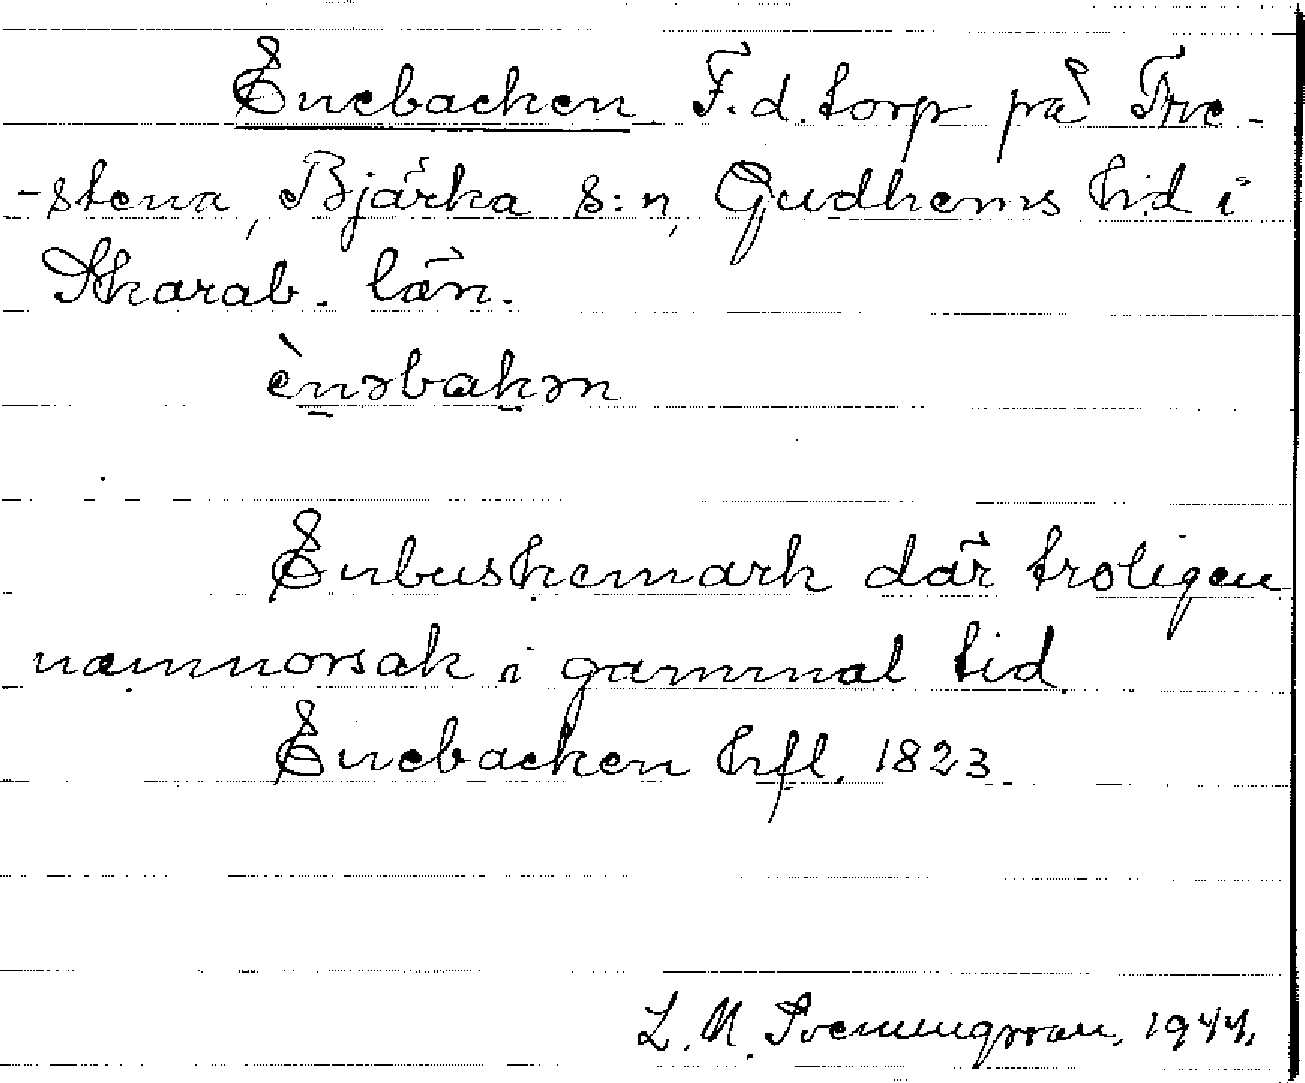 Enebacken F.d. torp på Tre-
-stena, Bjärka s:n, Gudhems hd i
Skarab. län.
ènəbakən
Enbuskemark där troligen
namnorsak i gammal tid.
Enebacken hfl. 1823.
L. M. Svenungsson. 1944.